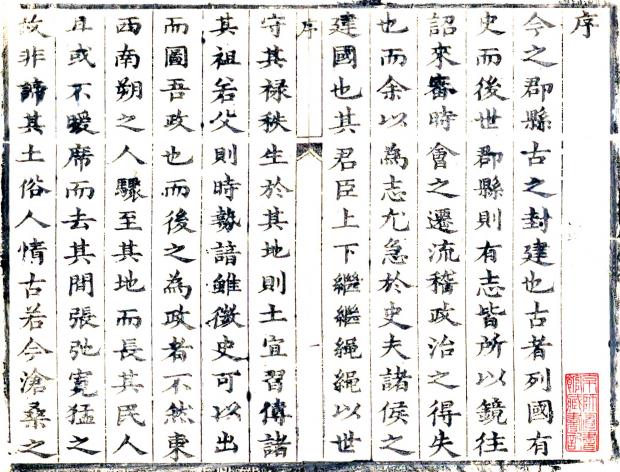 序
今之郡縣古之封建也古者列國有
史而後世郡縣則有志皆所以鏡往
詔來審時會之遷流稽政治之得失
也而余以為志尤急於史夫諸侯之
建國也其君臣上下繼繼繩繩以世
序 一
守其禄秩生於其地則土宜習傳諸
其祖若父則時勢諳雖微史可以出
而圖吾政也而後之為政者不然東
西南朔之人驟至其地而長其民人
且或不暖席而去其間張弛寬猛之
故非諦其土俗人情古若今滄桑之